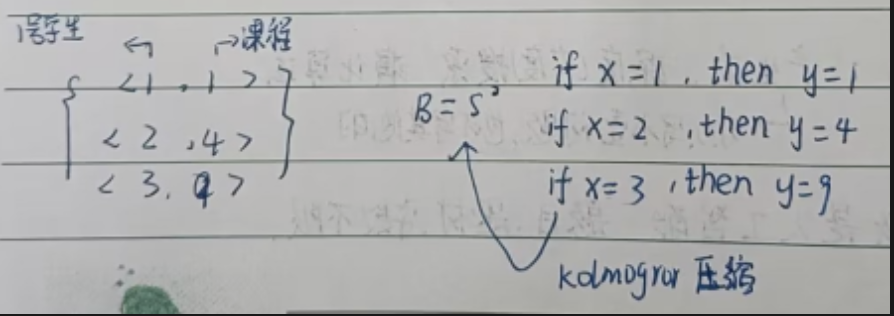 1号学生 课程
<1 , 1>
<2 , 4>
<3 , 9>
B = S²
if x=1 , then y=1
if x=2 , then y=4
if x=3 , then y=9
kolmogror 压缩